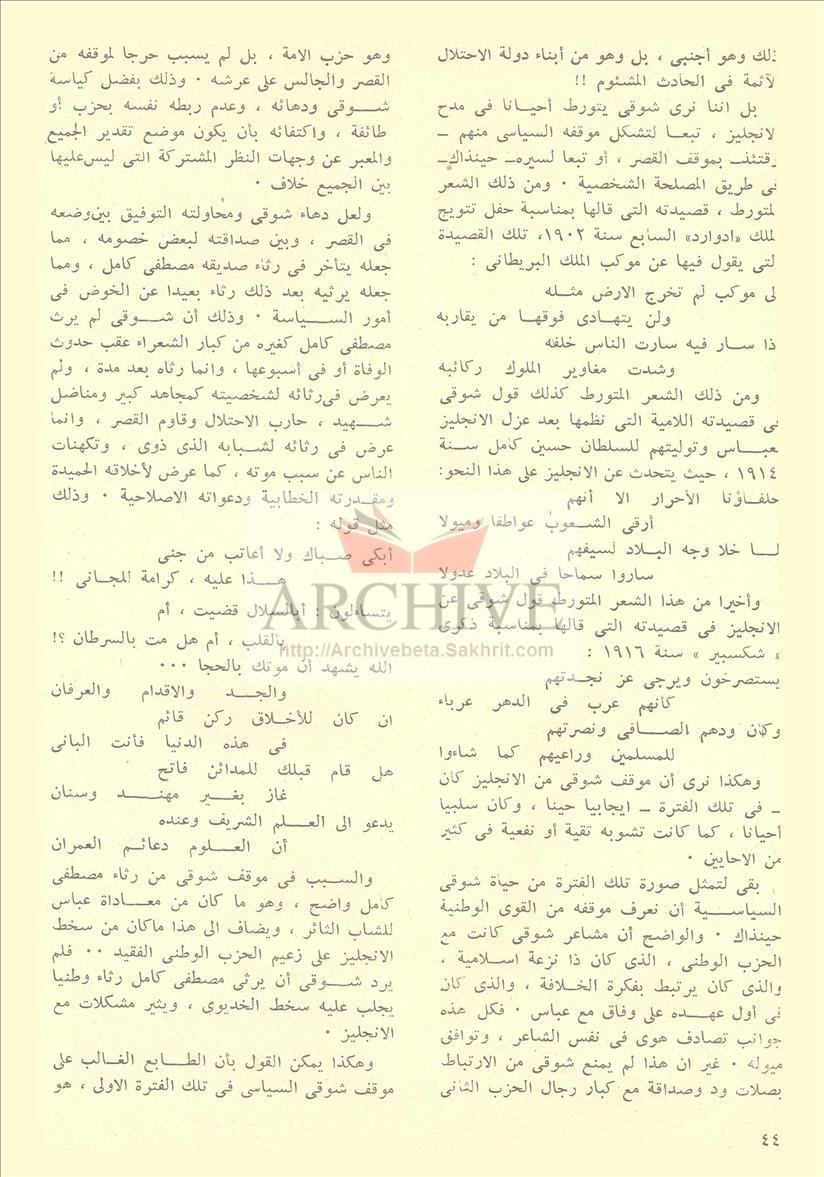 ذلك وهو أجنبى ، بل وهو من أبناء دولة الاحتلال
لآثمة فى الحادث المشئوم !!
بل اننا نرى شوقى يتورط أحيانا فى مدح
لانجليز ، تبعا لتشكل موقفه السياسى منهم ــ
رقتئذــ بموقف القصر ، أو تبعا لسيره ــ حينذاك ــ
فى طريق المصلحة الشخصية ٠ ومن ذلك الشعر
لمتورط ، قصيدته التى قالها بمناسبة حفل تتويج
لملك «ادوارد» السابع سنة ١٩٠٢، تلك القصيدة
لتى يقول فيها عن موكب الملك البريطانى :
لى موكب لم تخرج الارض مثـله
ولن يتهـادى فوقهـا من يقاربه
ذا ســار فيه سارت الناس خلفه
وشدت مغاوير الملوك ركائبه
ومن ذلك الشعر المتورط كذلك قول شوقى
فى قصيدته اللامية التى نظمها بعد عزل الانجليز
لعبـاس وتوليتهم للسلطان حسين كامل سـنة
١٩١٤ ، حيث يتحدث عن الانجليز على هذا النحو:
حلفـاؤنا الأحرار الا أنهم
أرقى الشـعوب عواطفا وميولا
لـا خلا وجه البـلاد لسيفهم
ساروا سماحا فى البلاد عدولا
وأخيرا من هذا الشعر المتورط قول شوقى عن
الانجليز فى قصيدته التى قالها بمناسبة ذكرى
« شكسبير » سنة ١٩١٦ :
يستصرخون ويرجى عز نجـدتهم
كأنهم عرب فى الدهر عرباء
وكان ودهم الصـافى ونصرتهم
للمسلمين وراعيهم كما شاءوا
وهكذا نرى أن موقف شوقى من الانجليز كان
ــ فى تلك الفترة ــ ايجابيا حينا ، وكان سلبيا
أحيانا ، كما كانت تشوبه تقية أو نفعية فى كثير
من الاحايين ٠
بقى لتمثل صورة تلك الفترة من حياة شوقى
السياســية أن نعرف موقفه من القوى الوطنية
حينذاك ٠ والواضح أن مشاعر شوقى كانت مع
الحزب الوطنى ، الذى كان ذا نزعة اسـلامية ،
والذى كان يرتبط بفكرة الخلافة ، والذى كان
فى أول عهـده على وفاق مع عباس ٠ فكل هذه
جوانب تصادف هوى فى نفس الشاعر ، وتوافق
ميوله ٠ غير ان هذا لم يمنع شوقى من الارتباط
بصلات ود وصداقة مع كبار رجال الحزب الثانى
وهو حزب الامة ، بل لم يسبب حرجا لموقفه من
القصر والجالس على عرشه ٠ وذلك بفضل كياسة
شــوقى ودهائه ، وعدم ربطه نفسه بحزب أو
طائفة ، واكتفائه بأن يكون موضع تقدير الجميع
والمعبر عن وجهات النظر المشتركة التى ليس عليها
بين الجميع خلاف ٠
ولعل دهاء شوقى ومحاولته التوفيق بين وضعه
فى القصر ، وبين صداقته لبعض خصومه ، مما
جعله يتأخر فى رثاء صديقه مصطفى كامل ، ومما
جعله يرثيه بعد ذلك رثاء بعيدا عن الخوض فى
أمور الســـياسة ٠ وذلك أن شــوقى لم يرث
مصطفى كامل كغيره من كبار الشعراء عقب حدوث
الوفاة أو فى أسبوعها ، وانما رثاه بعد مدة ، ولم
يعرض فى رثائه لشخصيته كمجاهد كبير ومناضل
شـــهيد ، حارب الاحتلال وقاوم القصر ، وانما
عرض فى رثائه لشبابه الذى ذوى ، وتكهنات
الناس عن سبب موته ، كما عرض لأخلاقه الحميدة
ومقـدرته الخطابية ودعواته الاصلاحية ٠ وذلك
مثل قوله :
أبكى صـباك ولا أعاتب من جنى
هــذا عليه ، كرامة للجـانى !!
يتساءلون : أبالسلال قضيت ، أم
بالقلب ، أم هل مت بالسرطان ؟!
الله يشهد أن موتك بالحجا ٠٠٠
والجـد والاقدام والعرفان
ان كان للأخـلاق ركن قائم
فى هذه الدنيا فأنت البانى
هل قام قبلك للمدائن فاتح
غاز بغــير مهنــد وسنان
يدعو الى العـلم الشريف وعنده
أن العـلوم دعائـم العمران
والسبب فى موقف شوقى من رثاء مصطفى
كامل واضح ، وهو ما كان من معـاداة عباس
للشاب الثائر ، ويضاف الى هذا ماكان من سخط
الانجليز على زعيم الحزب الوطنى الفقيد ٠٠ فلم
يرد شــوقى أن يرثى مصطفى كامل رثاء وطنيا
يجلب عليه سخط الخديوى ، ويثير مشكلات مع
الانجليز ٠
وهكذا يمكن القول بأن الطـابع الغـالب على
موقف شوقى السياسى فى تلك الفترة الاولى ، هو
٤٤
ARCHIVE
http://Archivebeta.Sakhrit.com